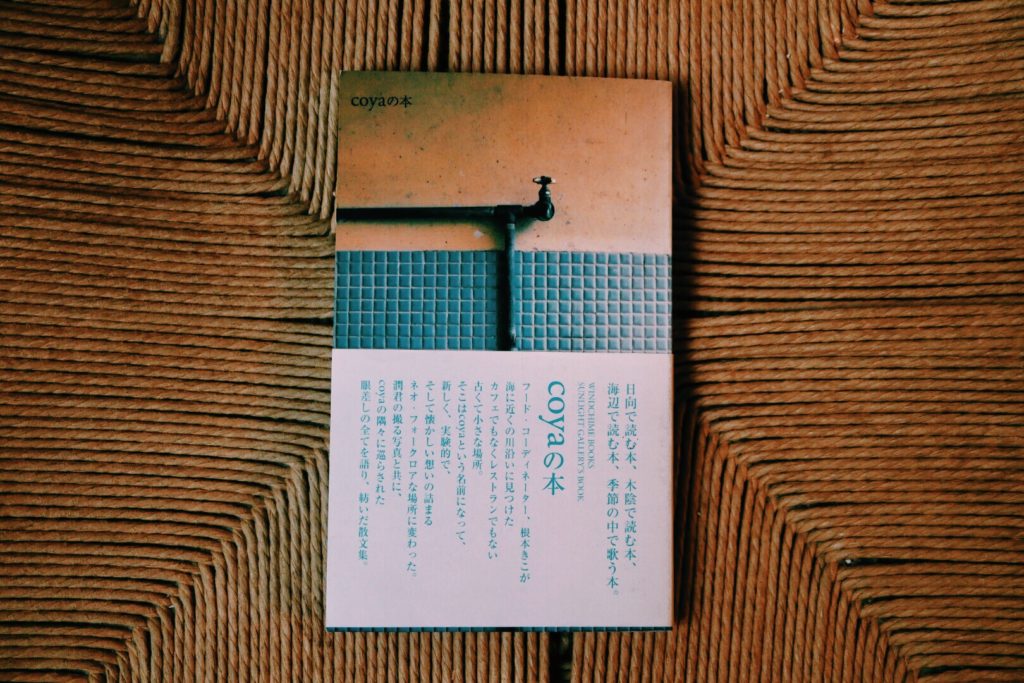 coyaの本
日向で読む本、木陰で読む本、
海辺で読む本、季節の中で歌う本。
WINDCHIME BOOKS
SUNLIGHT GALLERY'S BOOK
coyaの本
フード・コーディネーター、根本きこが
海に近くの川沿いに見つけた
カフェでもなくレストランでもない
古くて小さな場所。
そこはcoyaという名前になって、
新しく、実験的で、
そして懐かしい想いの詰まる
ネオ・フォークロアな場所に変わった。
潤君の撮る写真と共に、
coyaの隅々に巡らされた
眼差しの全てを語り、紡いだ散文集。